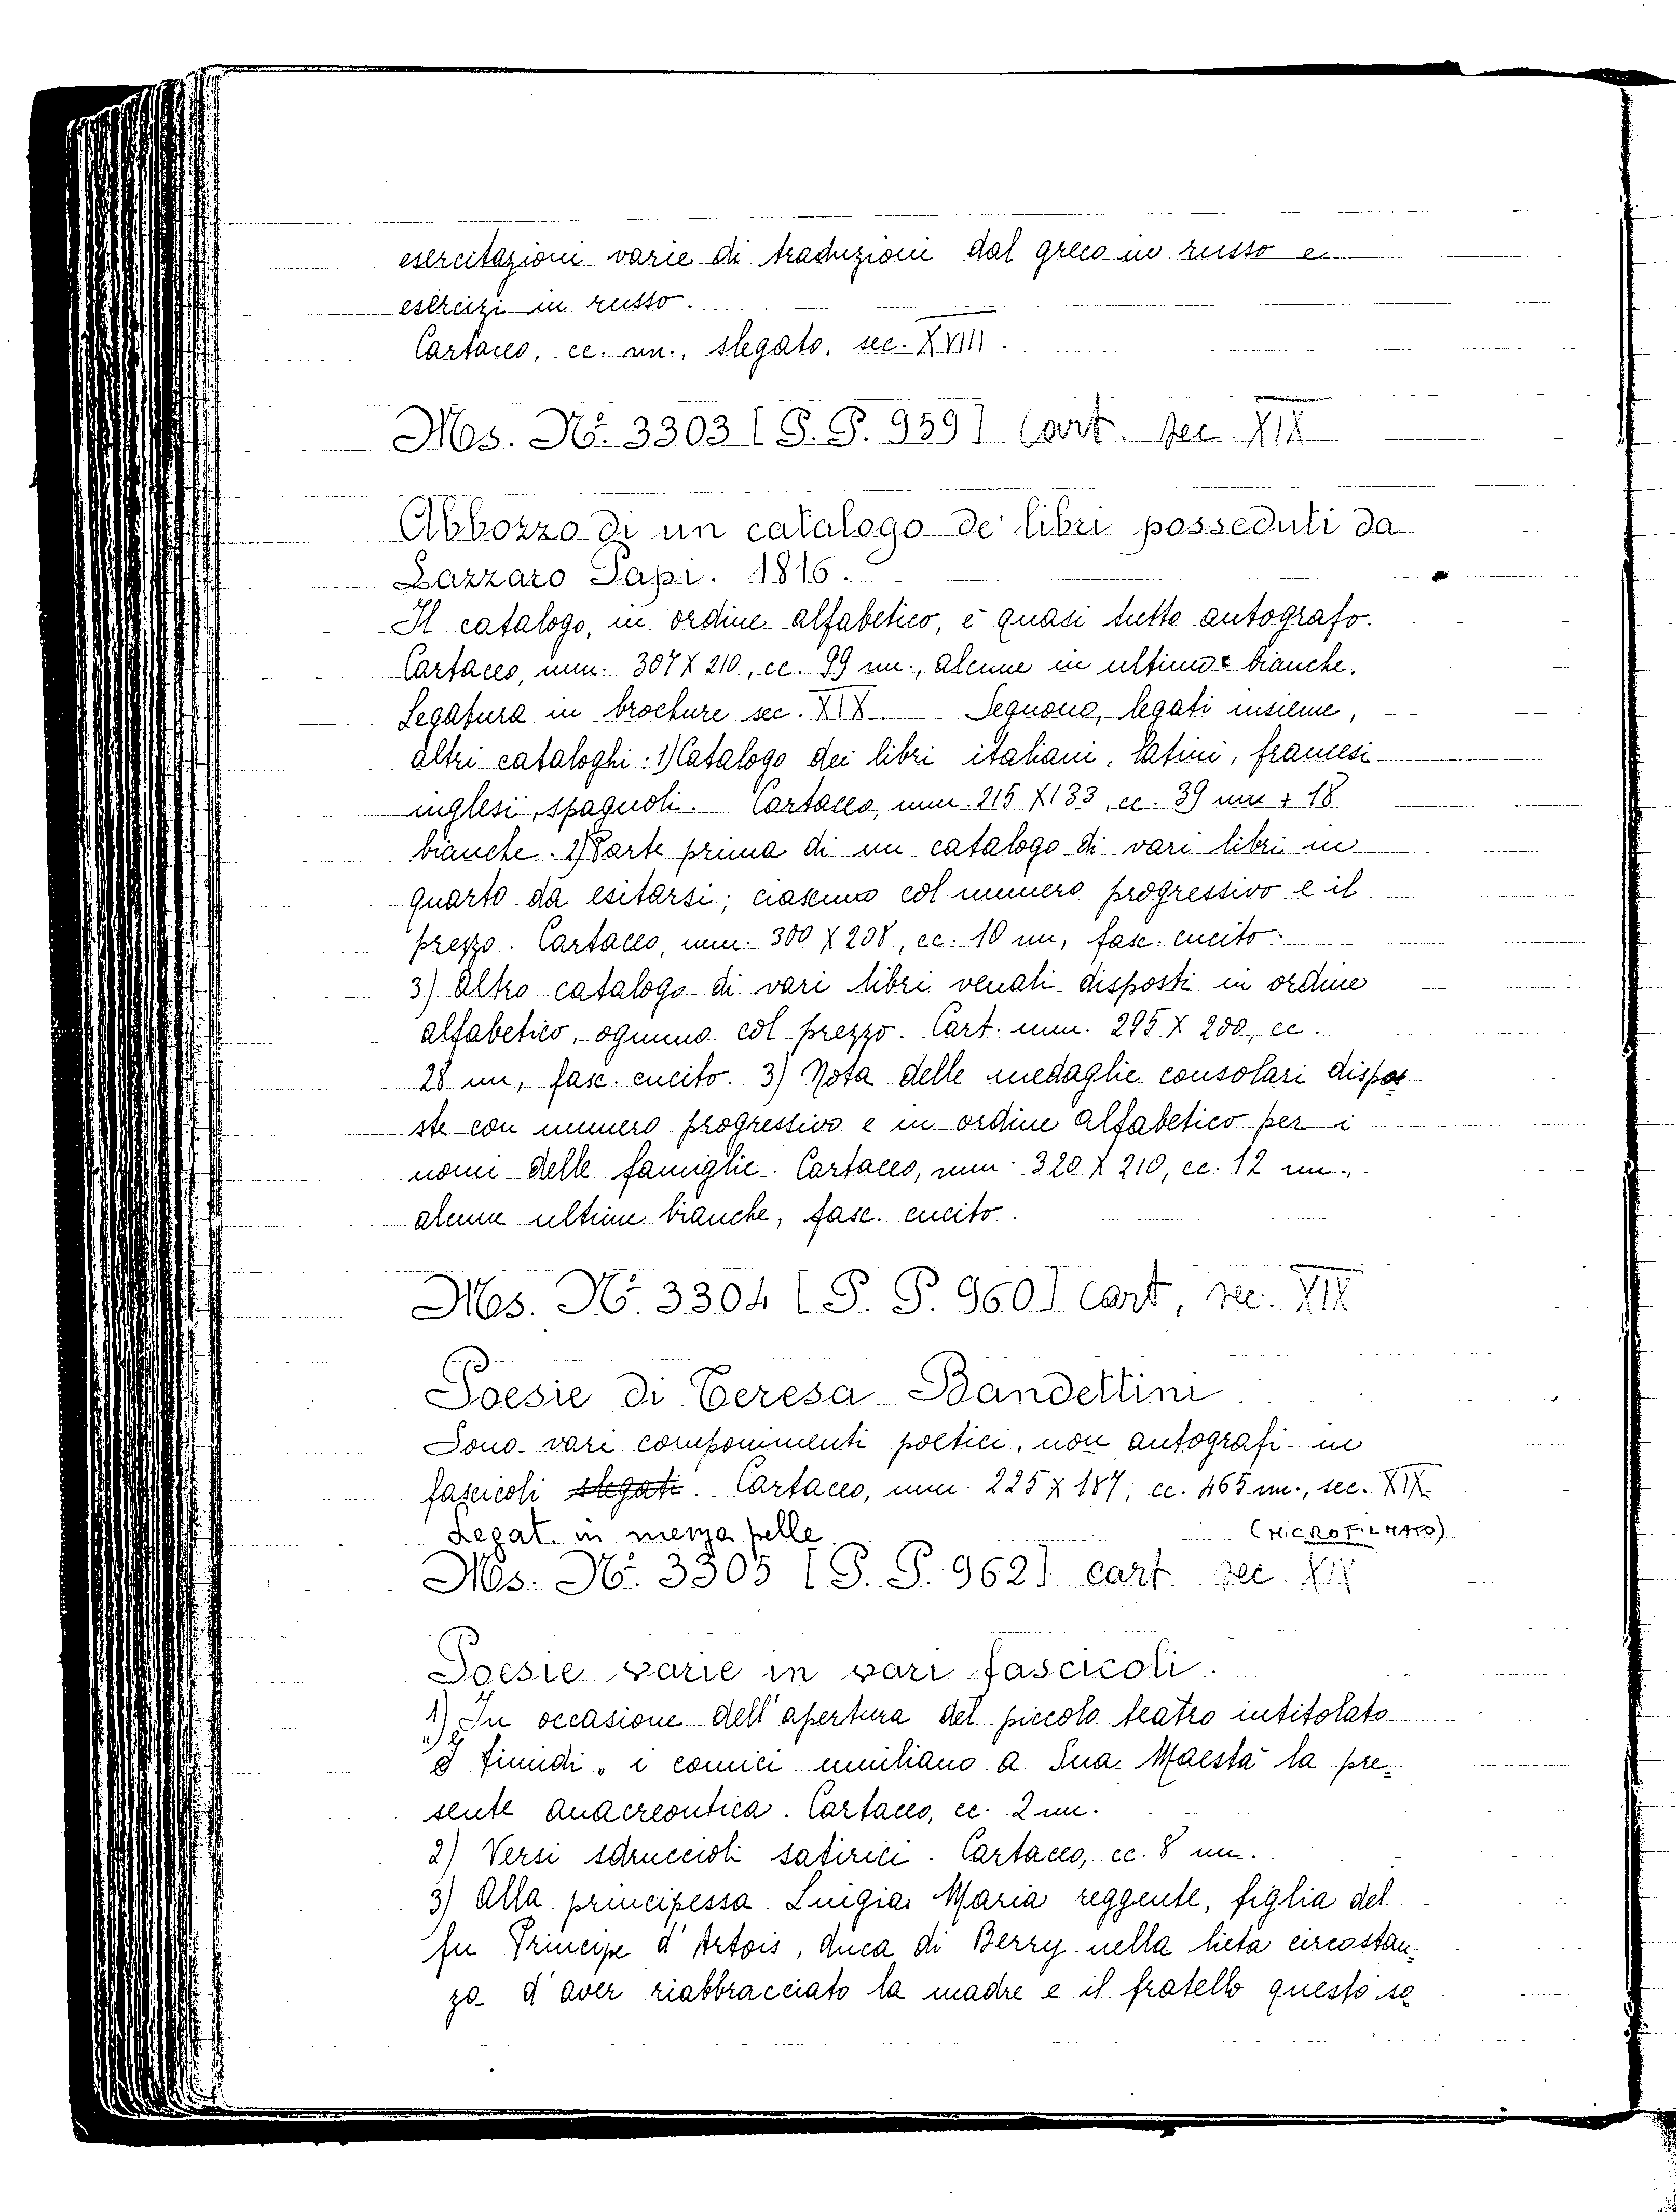 esercitazioni varie di traduzioni dal greco in russo e
esercizi in russo.
Cartaceo, cc. nn., slegato, sec. XVIII.
Mss. N.° 3303 [S. P. 959] Cart. sec. XIX
Abbozzo di un catalogo de' libri posseduti da
Lazzaro Papi. 1816.
Il catalogo, in ordine alfabetico, è quasi tutto autografo.
Cartaceo, mm. 307 X 210, cc. 99 nn., alcune in ultimo e bianche.
Legatura in brochure sec. XIX. Seguono, legati insieme,
altri cataloghi: 1) Catalogo dei libri italiani, latini, francesi
inglesi, spagnoli. Cartaceo, mm. 215 X 133, cc. 39 nn + 18
bianche. 2) Parte prima di un catalogo di vari libri in
quarto da esitarsi; ciascuno col numero progressivo e il
prezzo. Cartaceo, mm. 300 X 208, cc. 10 nn, fasc. cucito.
3) Altro catalogo di vari libri venali disposti in ordine
alfabetico, ognuno col prezzo. Cart. mm. 295 X 200, cc.
28 nn, fasc. cucito. 3) Nota delle medaglie consolari dispo
ste con numero progressivo e in ordine alfabetico per i
nomi delle famiglie. Cartaceo, mm. 320 X 210, cc. 12 nn.,
alcune ultime bianche, fasc. cucito.
Mss. N.° 3304 [S. P. 960] cart, sec. XIX
Poesie di Teresa Bandettini
Sono vari componimenti poetici, non autografi in
fascicoli slegati. Cartaceo, mm. 225 X 187; cc. 465 nn., sec. XIX
Legat. in mezza pelle (MICROFILMATO)
Mss. N.° 3305 [S. P. 962] cart. sec. XIX
Poesie varie in vari fascicoli.
1) In occasione dell'apertura del piccolo teatro intitolato
"I Timidi" i comici umiliano a Sua Maestà la pre-
sente anacreontica. Cartaceo, cc. 2 nn.
2) Versi sdruccioli satirici. Cartaceo, cc. 8 nn.
3) Alla principessa Luigia Maria reggente, figlia del
fu Principe d'Artois, duca di Berry nella lieta circostan-
za d'aver riabbracciato la madre e il fratello questo se